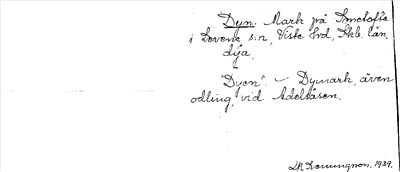 Dyn. Mark på Smetofta
i Levene s:n, Viste hd, Skb. län.
dýa.
"Dyen". – Dymark, även
odling, vid Adelsåsen.
1939.